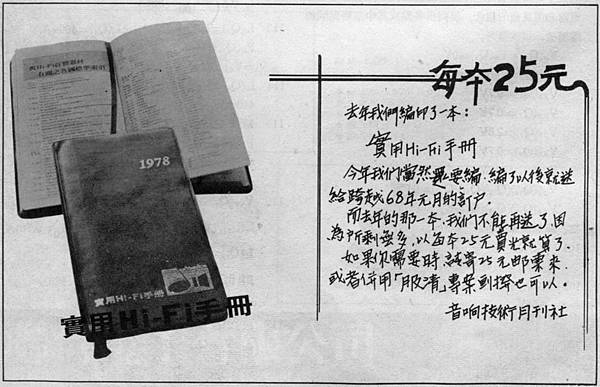 每本25元
去年我們編印了一本：
實用Hi-Fi手冊
今年我們當然還要編，編了以後就送
給跨越68年元月的訂戶。
而去年的那一本，我們不能再送了，因
為所剩無多，以每本25元賣光就算了。
如果你需要時，請寄25元郵票來，
或者併用「服清」專案劃撥也可以。
音响技術月刊社
與Hi-Fi音響器材
有關之各國標準索引
1978
實用Hi-Fi手冊
實用Hi-Fi手冊